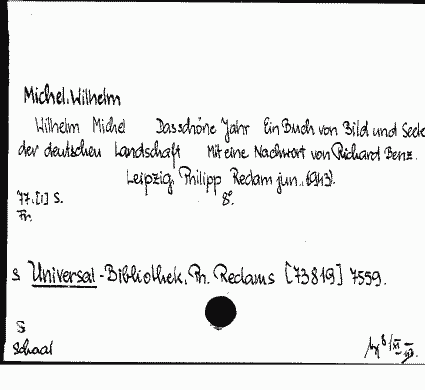 Michel, Wilhelm
Wilhelm Michel Das schöne Jahr Ein Buch von Bild und Seele
der deutschen Landschaft Mit eine Nachwort von Richard Benz.
Leipzig, Philipp Reclam jun. (1943).
77.[1] S. 8°.
Fr.
S Universal-Bibliothek, Ph. Reclams [73819] 7559.
S
Schaal